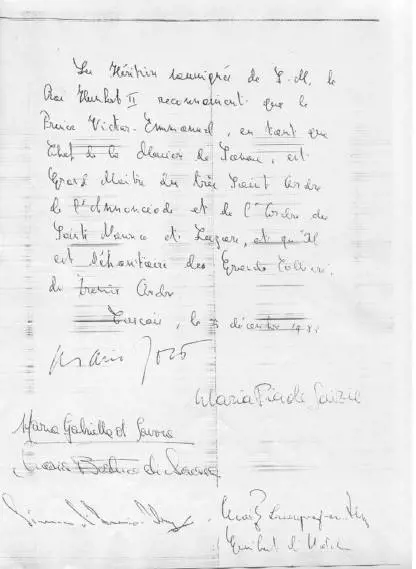 Les Héritiers soussignés de S.M. le
Roi Humbert II reconnaissent que le
Prince Victor-Emmanuel, en tant que
Chef de la Maison de Savoie, est
Grand Maître du très Saint Ordre
de l'Annonciade et de l'Ordre des
Saints Maurice et Lazare, et qu'Il
est dépositaire des Grands Colliers
du premier Ordre
Cascais, le décembre
Marie José
Maria Pia de Savoie
Maria Gabriella di Savoia
Maria Beatrice di Savoia